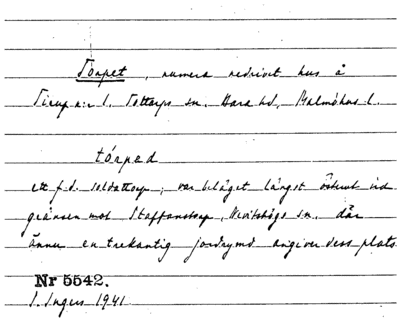 Torpet, numera nedrivet hus å
Tirup n:r 1, Tottarps sn. Bara hd, Malmöhus l.
tórpəd
ett f.d. soldattorp; var beläget längst österut vid
gränsen mot Staffanstorp, Nevishögs sn. där
ännu en trekantig jordrymd angiver dess plats.
Nr 5542.
I. Ingers 1941